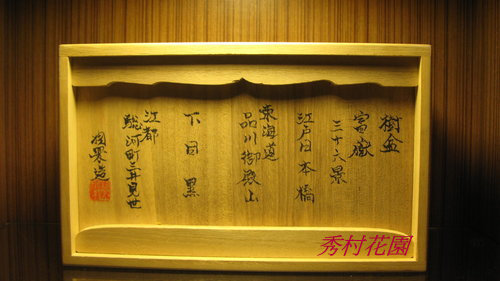 樹盆
富嶽
三十六景
江戸日本橋
東海道
品川御殿山
下目黒
江都
駿河町三井見世
秀村花園